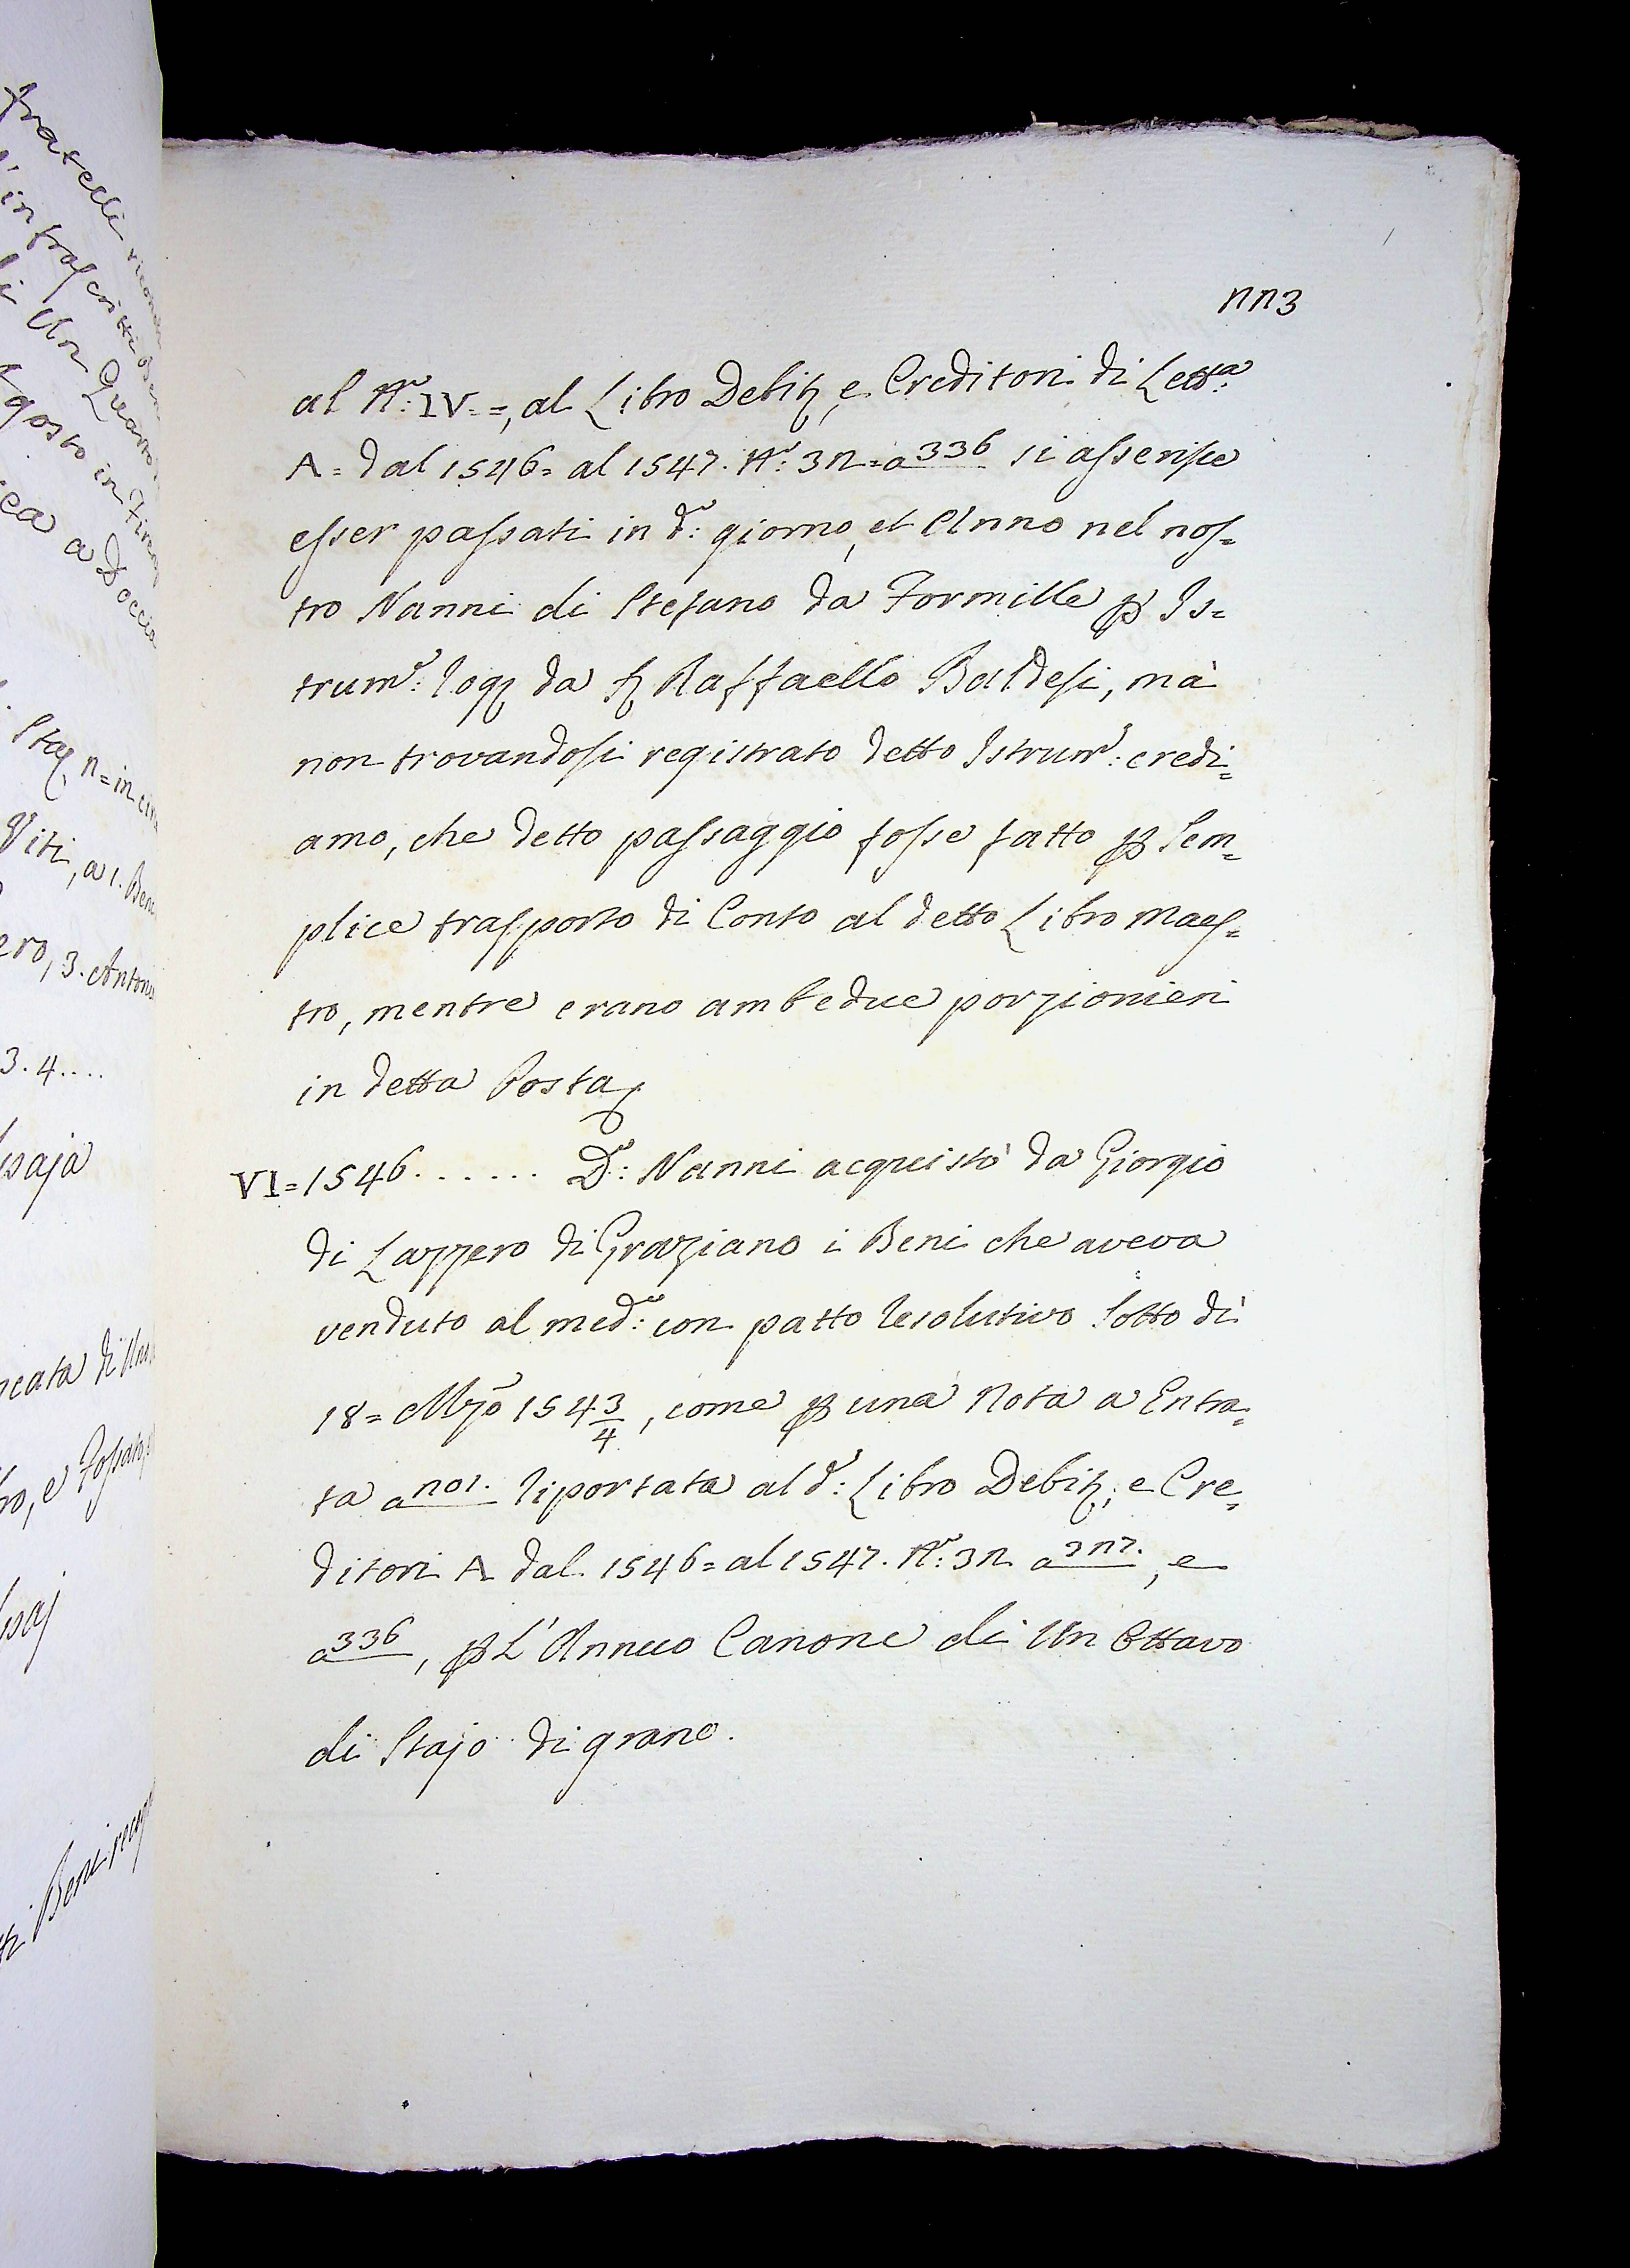 fratelli
l'infrascritti Beni
di Un Quarto
Agosto in Firen
a Doccia
Staj n = in cin
Viti, a 1. Beni
ero, 3. Antonio
3. 4....
ro, e Fossato
Beni
223
al N.o: IV. =, al Libro Debit.i, e Creditori di Lett.a:
A = dal 1546 = al 1547. N.o: 32 = a 336 si asserisce
esser passati in d.o: giorno, et Anno nel nos=
tro Nanni di Stefano da Formille p Is=
trum.o: rog. da S. Raffaello Baldesi, mà
non trovandosi registrato detto Istrum.o: credi=
amo, che detto passaggio fosse fatto p sem=
plice trasporto di Conto al detto Libro Maes=
tro, mentre erano ambedue porzionieri
in detta Posta
VI = 1546...... D.o: Nanni acquistò da Giorgio
di Lazzero di Graziano i Beni che aveva
venduto al med.o: con patto resolutivo sotto dì
18 = Mzo 154 3/4, come p una Nota a Entra=
ta a 201. riportata al d.o: Libro Debit.i, e Cre=
ditori A dal 1546 = al 1547. N.o: 32 a 327., e
a 336, p L'Annuo Canone di Un Ottavo
di Stajo di grano.